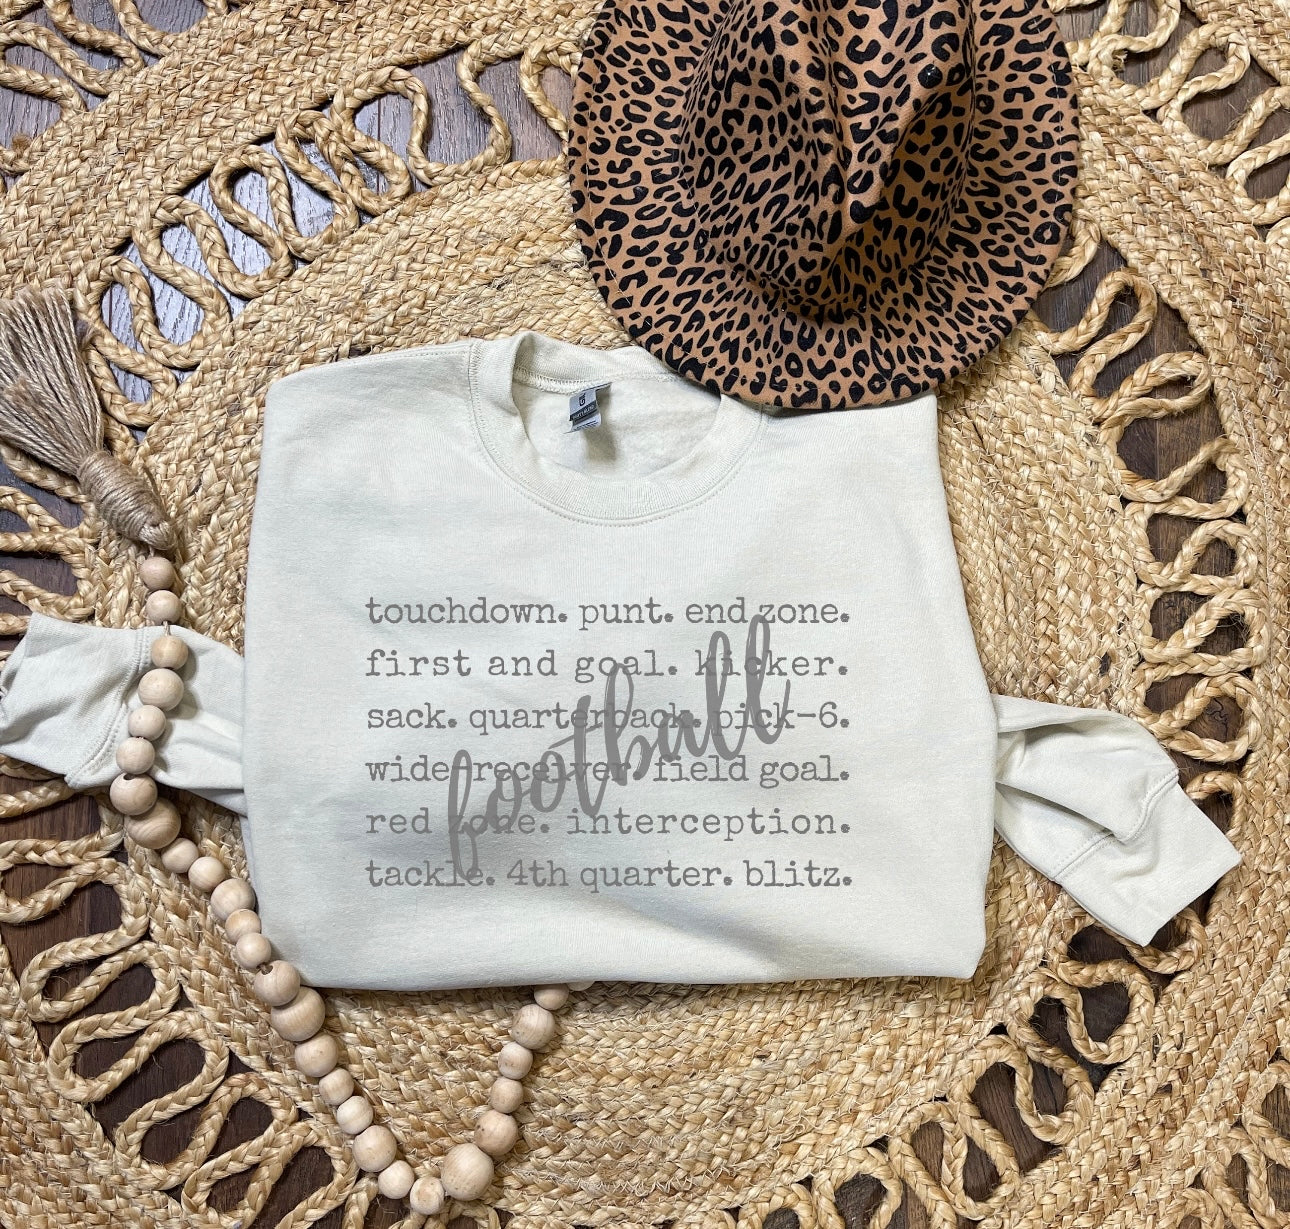 touchdown. punt. end zone.
first and goal. kicker.
sack. quarterback. pick-6.
wide receiver. field goal.
red zone. interception.
tackle. 4th quarter. blitz.
football